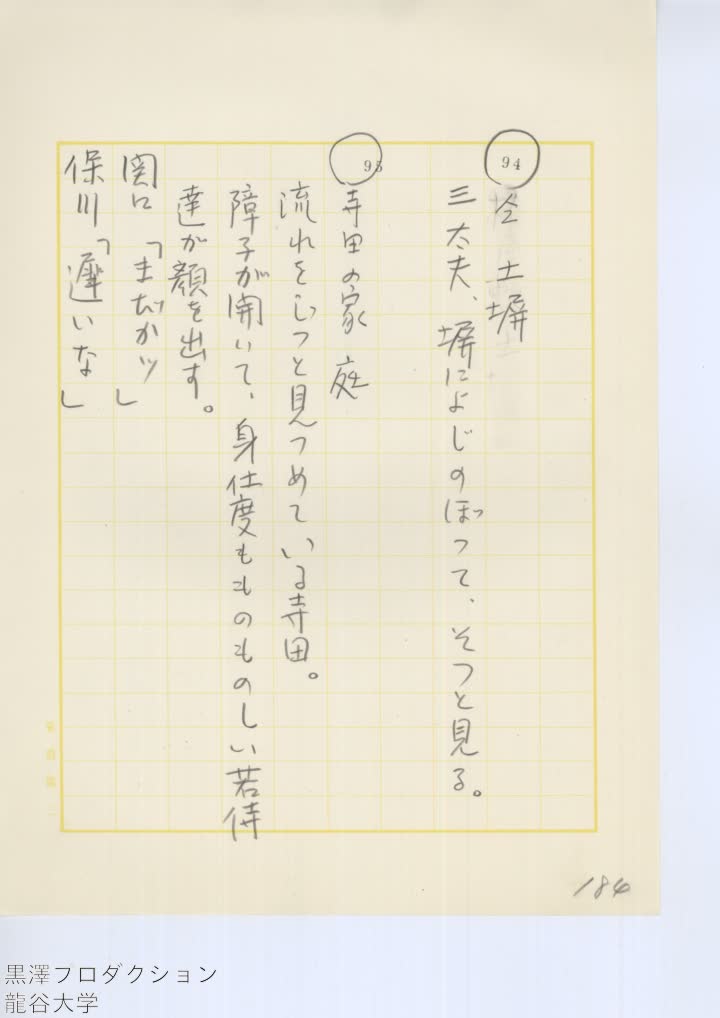 94
仝 土塀
三太夫、塀によじのぼって、そっと見る。
95
寺田の家 庭
流れをじっと見つめている寺田。
障子が開いて、身仕度もものものしい若侍
達が顔を出す。
関口「まだかッ」
保川「遅いな」
184
黒澤プロダクション
龍谷大学